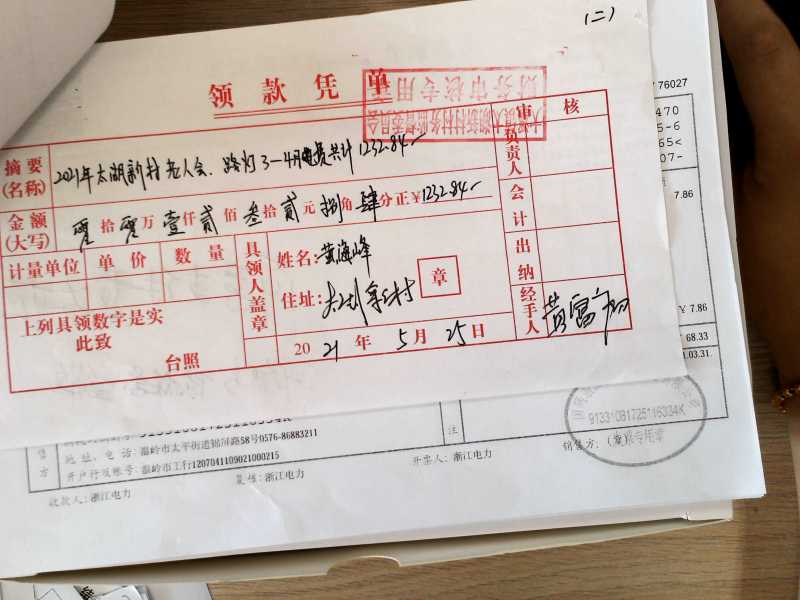 (二)
领款凭单
财务审核专用
审核
摘要(名称) 2021年太湖新村老人会、路灯3-4月电费共计1232.84
负责人
金额(大写) 零拾零万壹仟贰佰叁拾贰元捌角肆分正¥1232.84
会计
计量单位 单价 数量
具领人盖章
姓名:黄海峰
住址:
章
出纳
上列具领数字是实
此致
台照
2021年5月25日
经手人
76027
470
5-6
65<
07-
7.86
¥ 7.86
68.33
.03.31.
方
地址、电话:温岭市太平街道锦屏路58号0576-86883211
开户行及账号:温岭市工行1207041109021000215
注
91331081725116334K
销售方:(章)
发票专用章
收款人:浙江电力
复核:浙江电力
开票人:浙江电力